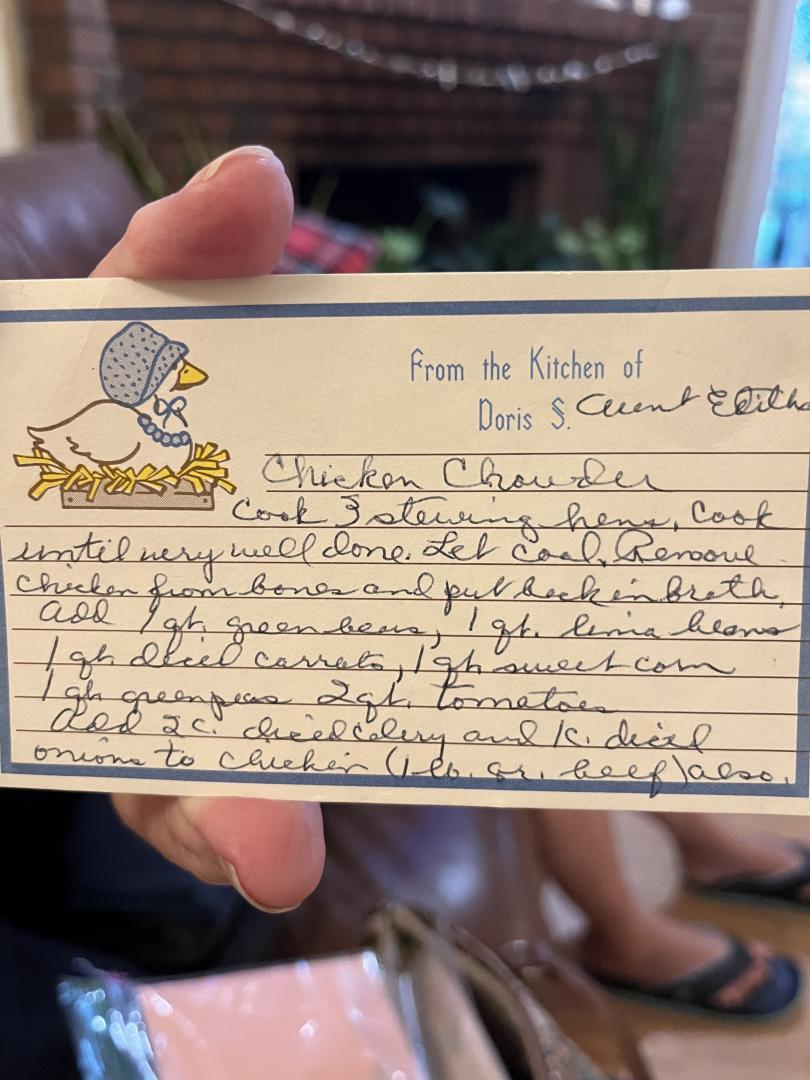 From the Kitchen of
Doris S. Aunt Edith
Chicken Chowder
Cook 3 stewing hens, cook
until very well done. Let cool. Remove
chicken from bones and put back in broth,
add 1 qt. green beans, 1 qt. lima beans
1 qt diced carrots, 1 qt sweet corn
1 qt green peas 2 qt. tomatoes
add 2 c. diced celery and 1 c. diced
onions to chicken (1 lb. gr. beef) also.